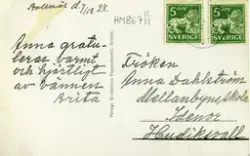 Bollnäs d. 7/12 28.
HMB67
Anna gratu-
leras varmt
och hjärtligt
av vännen
Brita
5 ÖRE 5 ÖRE
SVERIGE SVERIGE
Fröken
Anna Dahlström
Mellanbyns skola
Idenor
Hudiksvall